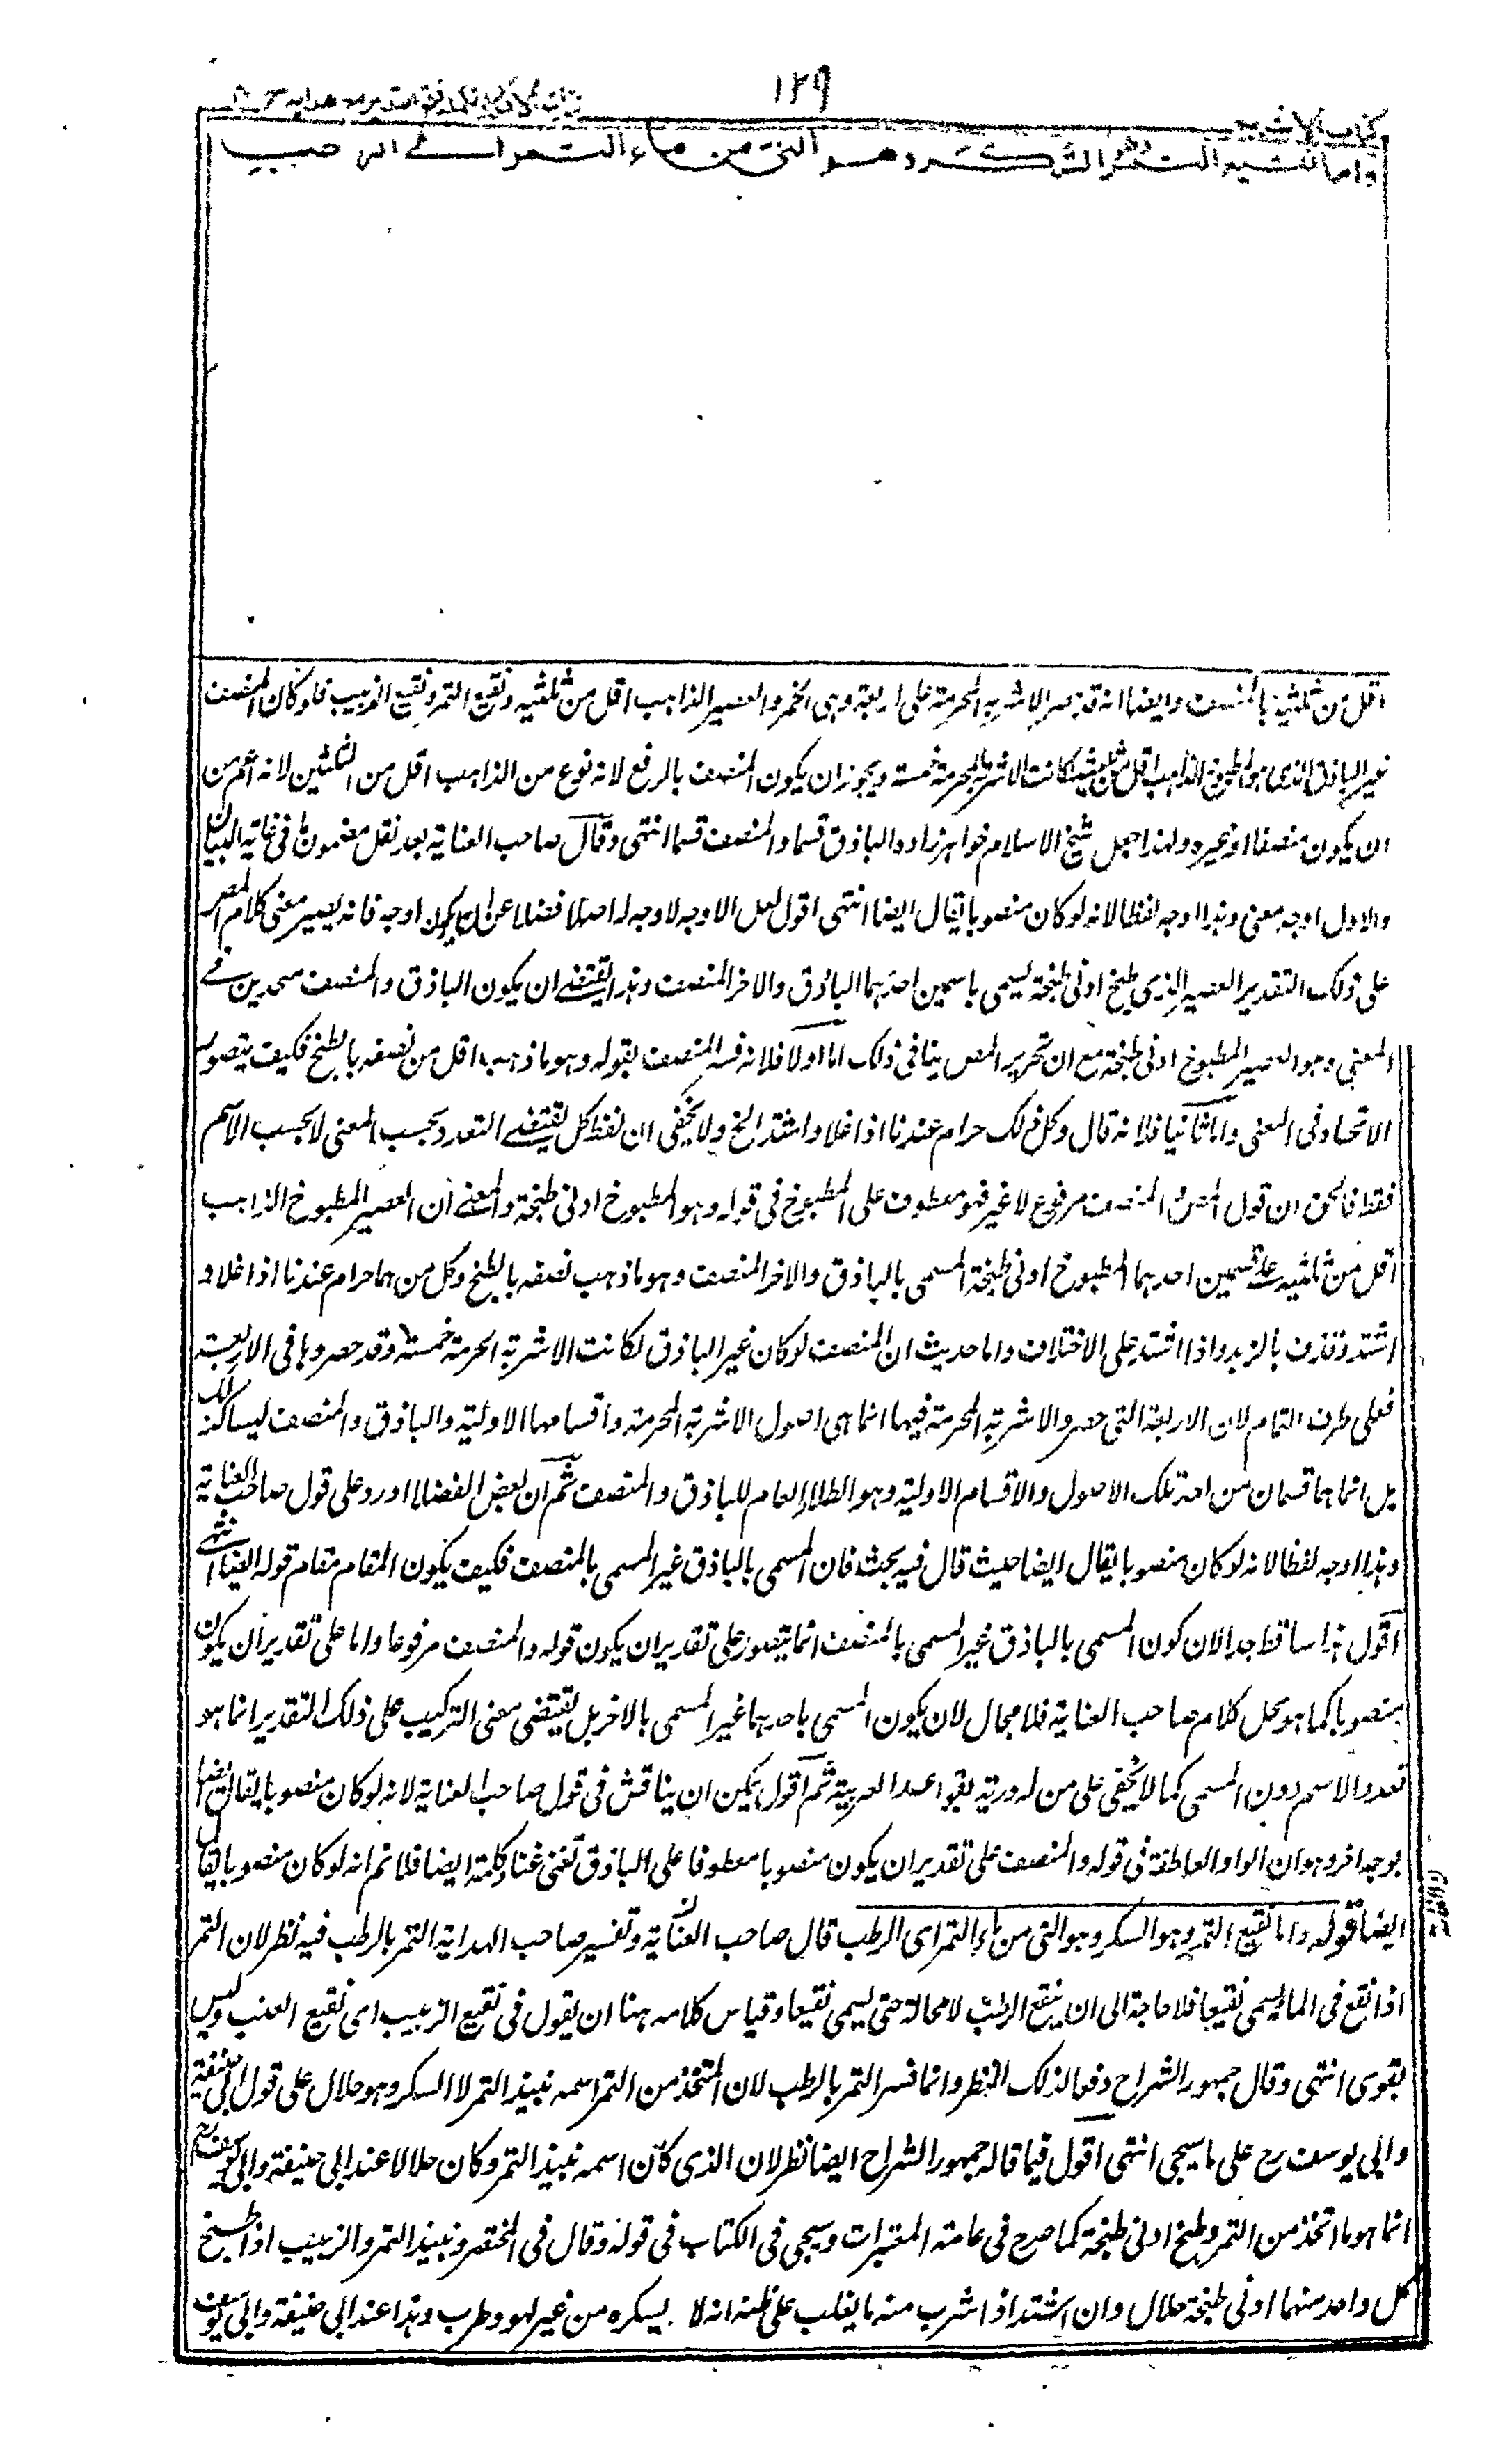 ١٢٩
كتاب الاشربة
نتائج الافكار تكملة فتح القدير مع هدايه ج ٤
واما نقيع التمر وهو السكر وهو النئ من ماء التمر اى الرطب
اقل من ثلثيه بالمنصف وايضا انه قد حصر الاشربة المحرمة على اربعة وهى الخمر والعصير الذاهب اقل من ثلثيه ونقيع التمر ونقيع الزبيب فلو كان المنصف
غير الباذق الذى هو المطبوخ الذاهب اقل من ثلثيه لكانت الاشربة المحرمة خمسة ويجوز ان يكون المنصف بالرفع لانه نوع من الذاهب اقل من الثلثين لانه اعم من
ان يكون منصفا او غيره ولهذا جعل شيخ الاسلام خواهر زاده الباذق قسما والمنصف قسما انتهى وقال صاحب العناية بعد نقل مضمون ما فى غاية البيان
والاول اوجه معنى وهذا اوجه لفظا لانه لو كان منصوبا يقال ايضا انتهى اقول لعل الاوجه لا وجه له اصلا فضلا عن ان يكون اوجه فانه يصير معنى كلام المص
على ذلك التقدير العصير الذى طبخ ادنى طبخة يسمى باسمين احدهما الباذق والاخر المنصف وهذا يقتضى ان يكون الباذق والمنصف متحدين فى
المعنى وهو العصير المطبوخ ادنى طبخة مع ان تحرير المص ينافى ذلك اما اولا فلانه فسر المنصف بقوله وهو ما ذهب اقل من نصفه بالطبخ فكيف يتصور
الاتحاد فى المعنى واما ثانيا فلانه قال وكل ذلك حرام عندنا اذا غلا واشتد الخ ولا يخفى ان لفظ كل يقتضى التعدد بحسب المعنى لا بحسب الاسم
فقط فالحق ان قول المص والمنصف مرفوع لا غير فهو معطوف على المطبوخ فى قوله وهو المطبوخ ادنى طبخة والمعنى ان العصير المطبوخ الذاهب
اقل من ثلثيه على قسمين احدهما المطبوخ ادنى طبخة المسمى بالباذق والاخر المنصف وهو ما ذهب نصفه بالطبخ وكل من هما حرام عندنا اذا غلا و
اشتد وقذف بالزبد واذا اشتد على الاختلاف واما حديث ان المنصف لو كان غير الباذق لكانت الاشربة المحرمة خمسة وقد حصروها فى الاربعة
فعلى طرف التمام لان الاربعة التى حصروا الاشربة المحرمة فيها انما هى اصول الاشربة المحرمة واقسامها الاولية والباذق والمنصف ليسا كذلك
بل انما هما قسمان من احد تلك الاصول والاقسام الاولية وهو الطلاء العام للباذق والمنصف ثم ان بعض الفضلاء اورد على قول صاحب العناية
وهذا اوجه لفظا لانه لو كان منصوبا يقال ايضا حيث قال فيه بحث فان المسمى بالباذق غير المسمى بالمنصف فكيف يكون المقام مقام قوله ايضا انتهى
اقول هذا ساقط جدا لان كون المسمى بالباذق غير المسمى بالمنصف انما يتصور على تقدير ان يكون قوله والمنصف مرفوعا واما على تقدير ان يكون
منصوبا كما هو محل كلام صاحب العناية فلا مجال لان يكون المسمى باحدهما غير المسمى بالاخر بل يقتضى معنى التركيب على ذلك التقدير انما هو
تعدد الاسم دون المسمى كما لا يخفى على من له درية بقواعد العربية ثم اقول يمكن ان يناقش فى قول صاحب العناية لانه لو كان منصوبا يقال ايضا
بوجه اخر وهو ان الواو العاطفة فى قوله والمنصف على تقدير ان يكون منصوبا معطوفا على الباذق تغنى غناء كلمة ايضا فلا نم انه لو كان منصوبا يقال
ايضا قوله واما نقيع التمر وهو السكر وهو النى من ماء التمر اى الرطب قال صاحب العناية وتفسير صاحب الهداية التمر بالرطب فيه نظر لان التمر
اذا نقع فى الماء يسمى نقيعا فلا حاجة الى ان ينقع الرطب لا محالة حتى يسمى نقيعا وقياس كلامه هنا ان يقول فى نقيع الزبيب اى نقيع العنب وليس
بقوى انتهى وقال جمهور الشراح دفعا لذلك النظر وانما فسر التمر بالرطب لان المتخذ من التمر اسمه نبيذ التمر لا السكر وهو حلال على قول ابى حنيفة
وابى يوسف رح على ما سيجى انتهى اقول فيما قاله جمهور الشراح ايضا نظر لان الذى كان اسمه نبيذ التمر وكان حلالا عند ابى حنيفة وابى يوسف رح
انما هو ما اتخذ من التمر وطبخ ادنى طبخة كما صرح فى عامة المعتبرات وسيجى فى الكتاب فى قوله وقال فى المختصر ونبيذ التمر والزبيب اذا طبخ
كل واحد منهما ادنى طبخة حلال وان اشتد اذا شرب منه ما يغلب على ظنه انه لا يسكره من غير لهو وطرب وهذا عند ابى حنيفة وابى يوسف